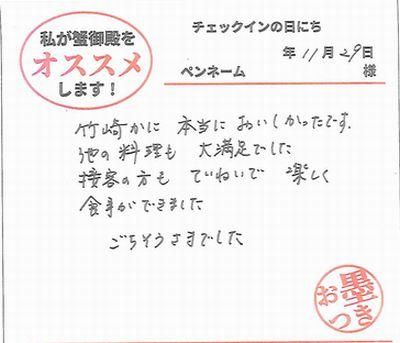 私が蟹御殿を
オススメ
します！
チェックインの日にち
年 11月29日
ペンネーム 様
竹崎かに 本当に おいしかったです。
他の料理も 大満足でした
接客の方も ていねいで 楽しく
食事ができました
ごちそうさまでした
お墨つき